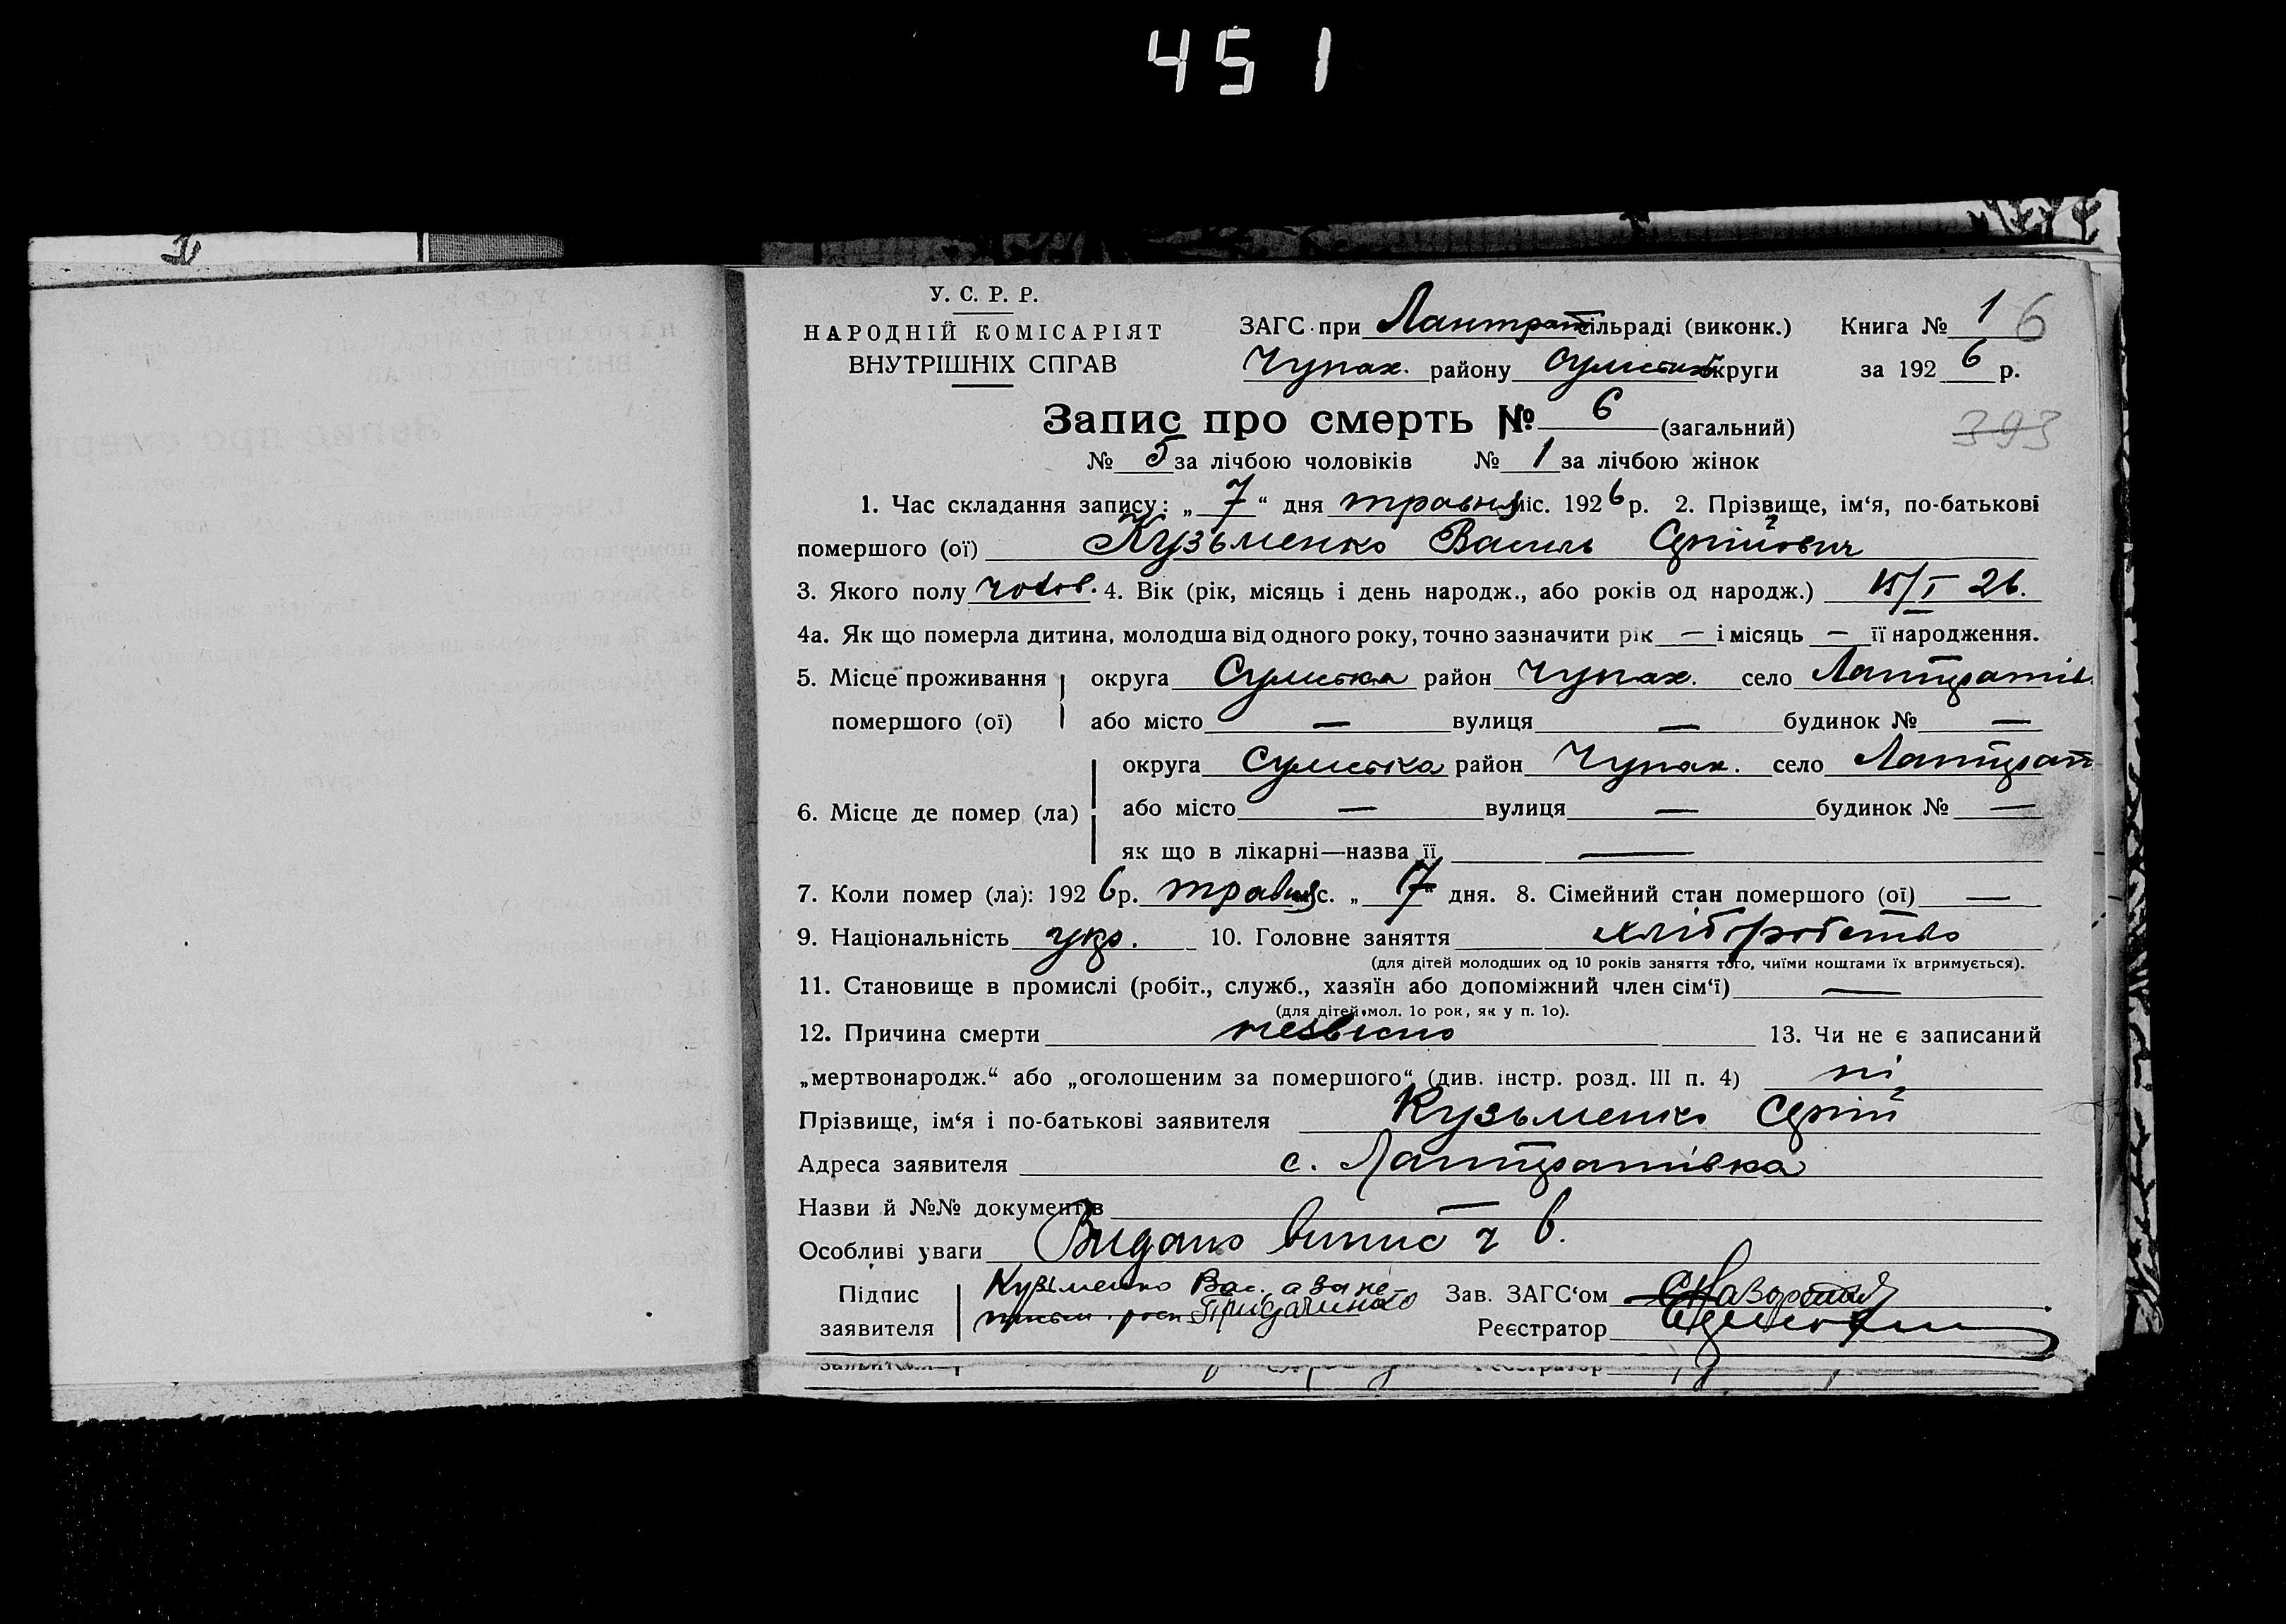 451
У. С. Р. Р.
НАРОДНІЙ КОМІСАРІЯТ
ВНУТРІШНІХ СПРАВ
ЗАГС при Лантратсільраді (виконк.) Книга № 1 6
Чупах. району Сумської округи за 1926 р.
393
Запис про смерть № 6 (загальний)
№ 5 за лічбою чоловіків № 1 за лічбою жінок
1. Час складання запису: „ 7 “ дня травня міс. 1926 р. 2. Прізвище, ім‘я, по-батькові
помершого (ої) Кузьменко Василь Сергійович
3. Якого полу чолов. 4. Вік (рік, місяць і день народж., або років од народж.) 15/I 26.
4а. Як що померла дитина, молодша від одного року, точно зазначити рік — і місяць — її народження.
5. Місце проживання помершого (ої) округа Сумська район Чупах. село Лантратів.
або місто — вулиця — будинок № —
6. Місце де помер (ла) округа Сумська район Чупах. село Лантрат
або місто — вулиця — будинок № —
як що в лікарні—назва її —
7. Коли помер (ла): 1926 р. травня с. „ 7 “ дня. 8. Сімейний стан помершого (ої) —
9. Національність укр. 10. Головне заняття хліборобство
(для дітей молодших од 10 років заняття того, чиїми коштами їх втримується).
11. Становище в промислі (робіт., служб., хазяїн або допоміжний член сім‘ї) —
(для дітей мол. 1о рок, як у п. 1о).
12. Причина смерти незвісно 13. Чи не є записаний
„мертвонародж.“ або „оголошеним за помершого“ (див. інстр. розд. III п. 4) ні
Прізвище, ім‘я і по-батькові заявителя Кузьменко Сергій
Адреса заявителя с. Лантратівка
Назви й №№ документів —
Особливі уваги Видано випис ч 6.
Підпис заявителя Кузьменко Вас. а за не
письм. росп.
Зав. ЗАГС‘ом
Реєстратор
заявителя Реєстратор